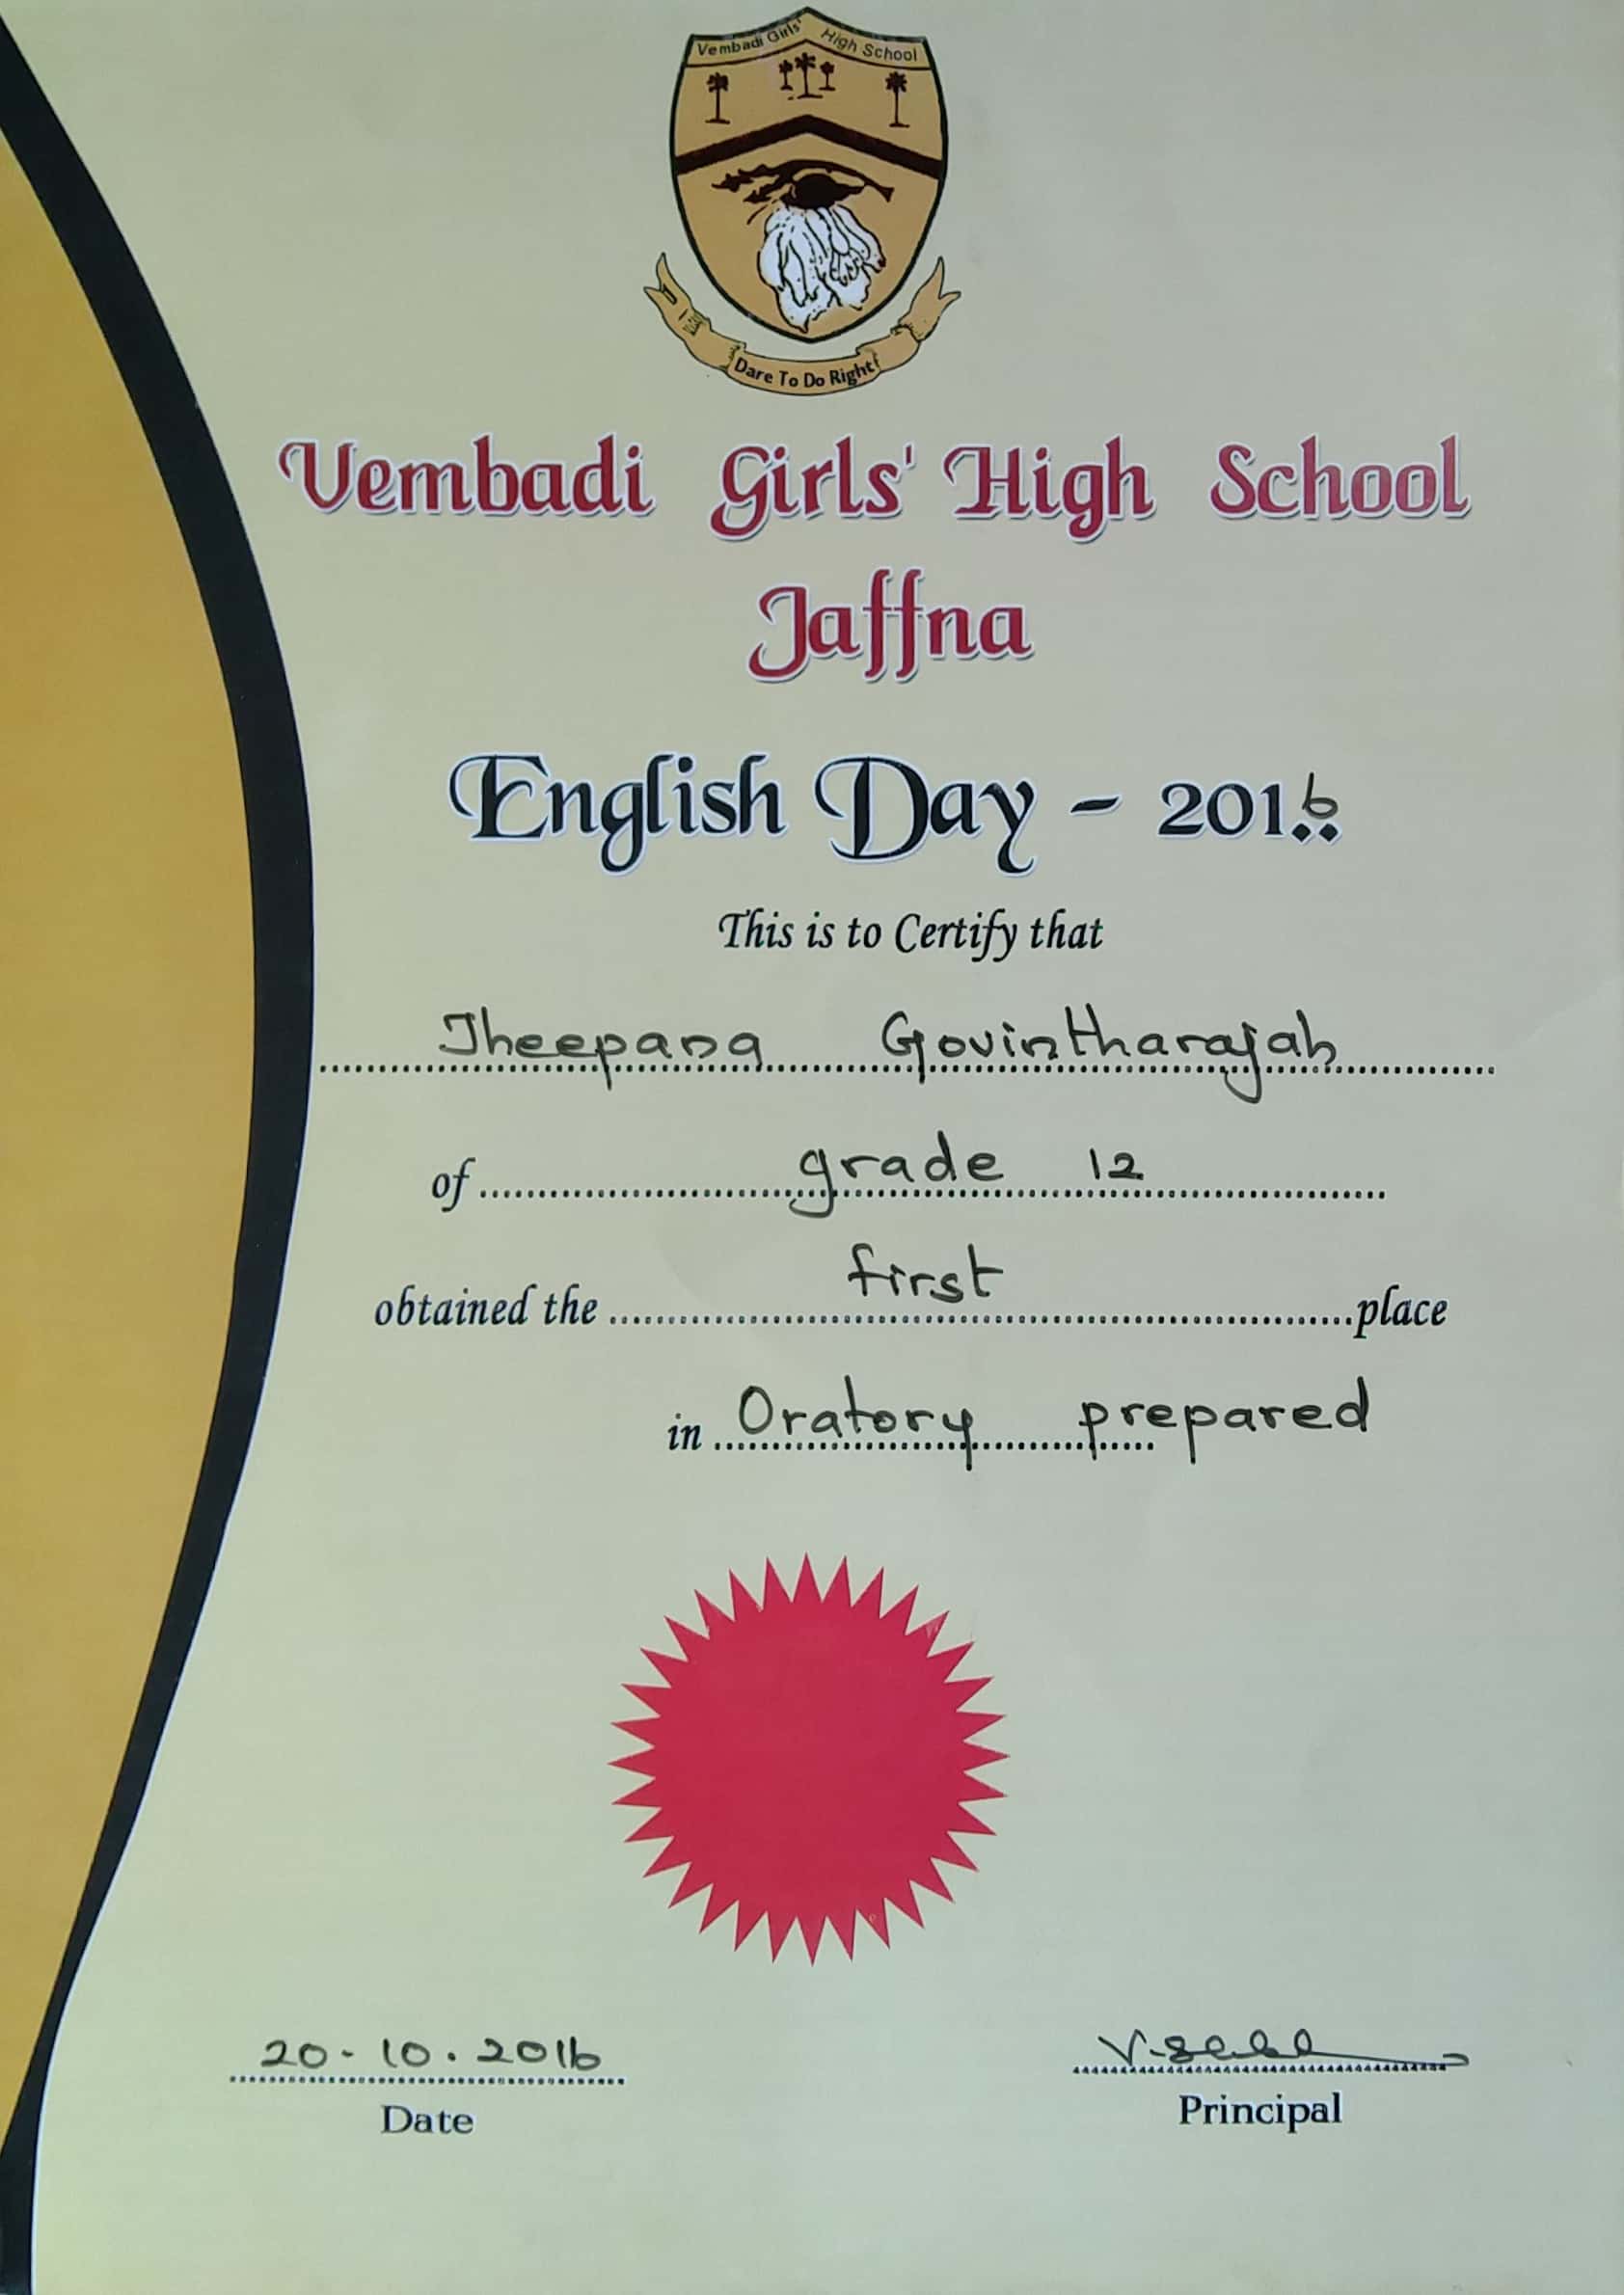 Vembadi Girls' High School
Dare To Do Right
Vembadi Girls' High School
Jaffna
English Day - 2016
This is to Certify that
Theepana Govintharajah
of grade 12
obtained the first place
in Oratory prepared
20-10.2016
Date
Principal